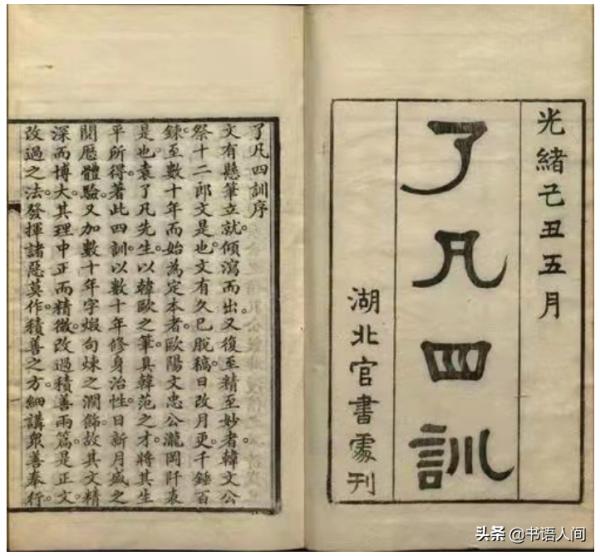 光緒己丑五月
了凡四訓
湖北官書處刊
了凡四訓序
文有懸筆立就。傾瀉而出。又復至精至妙者。韓文公
祭十二郎文是也。文有久已脫稿。日改月更。千錘百
鍊。至數十年而始為定本者。歐陽文忠公瀧岡阡表
是也。袁了凡先生以韓歐之筆。具韓范之才。將其生
平所得。著此四訓。以數十年修身治性。日新月盛之
閱歷體驗。又加數十年字鍛句煉之潤飾。故其文精
深而博大。其理中正而精微。改過積善兩篇。是正文。
改過之法。發揮諸惡莫作。積善之方。細講眾善奉行。
头条 @书语人间